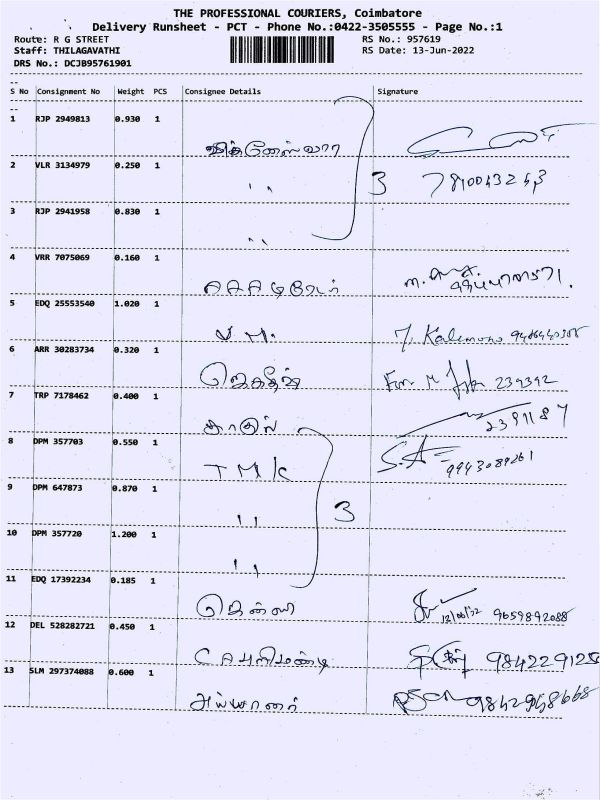 THE PROFESSIONAL COURIERS, Coimbatore
Delivery Runsheet - PCT - Phone No.:0422-3505555 - Page No.:1
Route: R G STREET RS No.: 957619
Staff: THILAGAVATHI RS Date: 13-Jun-2022
DRS No.: DCJB95761901
S No Consignment No Weight PCS Consignee Details Signature
1 RJP 2949813 0.930 1
விக்னேஸ்வரா
2 VLR 3134979 0.250 1
" 3 7810043243
3 RJP 2941958 0.830 1
"
4 VRR 7075069 0.160 1
5 EDQ 25553540 1.020 1
V.M.
6 ARR 30283734 0.320 1
ஜெகதீஷ் 239392
7 TRP 7178462 0.400 1
2391187
8 DPM 357703 0.550 1
TMK S.A 9943089261
9 DPM 647873 0.870 1
" 3
10 DPM 357720 1.200 1
"
11 EDQ 17392234 0.185 1
ஜென்னி 13/06/22 9659892088
12 DEL 528282721 0.450 1
984229125
13 SLM 297374088 0.600 1
அய்யனார் 9842948668